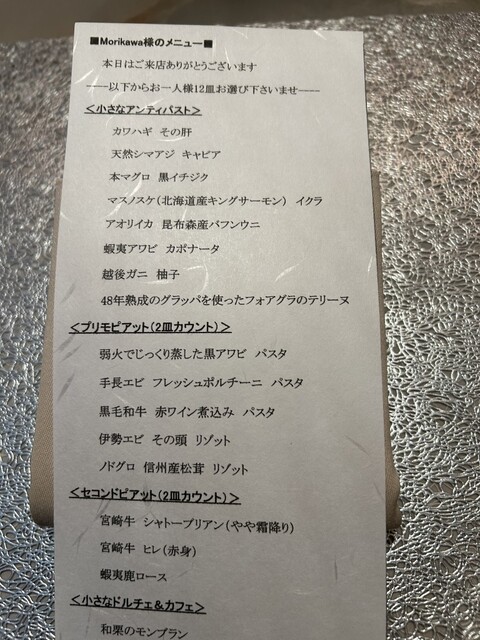 ■Morikawa様のメニュー■
本日はご来店ありがとうございます
----以下からお一人様12皿お選び下さいませ----
<小さなアンティパスト>
カワハギ その肝
天然シマアジ キャビア
本マグロ 黒イチジク
マスノスケ(北海道産キングサーモン) イクラ
アオリイカ 昆布森産バフンウニ
蝦夷アワビ カポナータ
越後ガニ 柚子
48年熟成のグラッパを使ったフォアグラのテリーヌ
<プリモピアット(2皿カウント)>
弱火でじっくり蒸した黒アワビ パスタ
手長エビ フレッシュポルチーニ パスタ
黒毛和牛 赤ワイン煮込み パスタ
伊勢エビ その頭 リゾット
ノドグロ 信州産松茸 リゾット
<セコンドピアット(2皿カウント)>
宮崎牛 シャトーブリアン(やや霜降り)
宮崎牛 ヒレ(赤身)
蝦夷鹿ロース
<小さなドルチェ&カフェ>
和栗のモンブラン